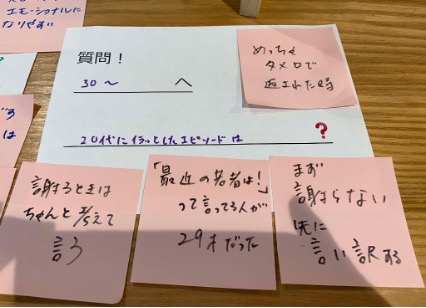 エモーショナルに
なりやすい
質問！
30〜 へ
めっちゃ
タメ口で
返された時
20代にイラッとしたエピソードは？
は
謝るときは
ちゃんと考えて
言う
「最近の若者は！」
って言ってる人が
29才だった
まず
謝らない
先に
言い訳する